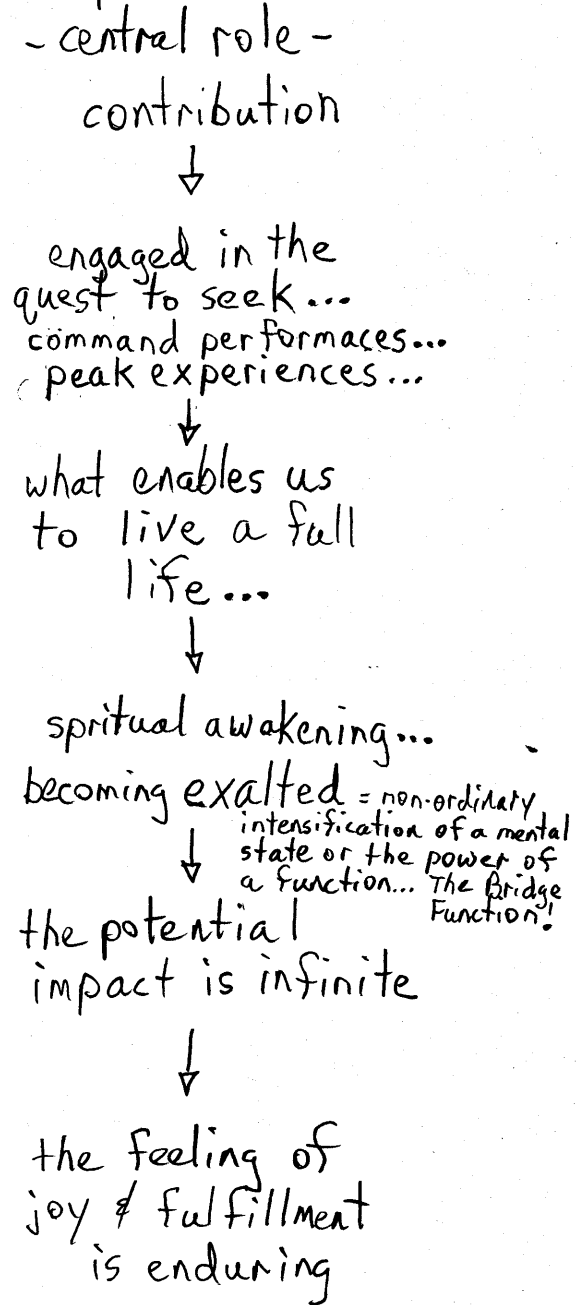 - central role -
contribution
engaged in the
quest to seek...
command performaces...
peak experiences...
what enables us
to live a full
life...
spritual awakening...
becoming exalted = non-ordinary
intensification of a mental
state or the power of
a function... The Bridge
Function!
the potential
impact is infinite
the feeling of
joy & fulfillment
is enduring